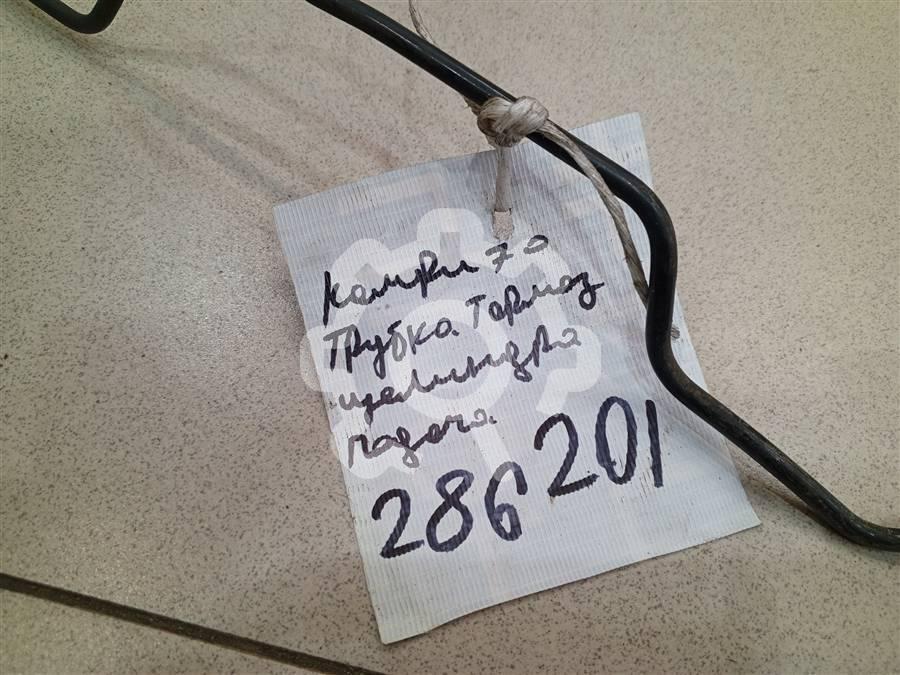 Камри 70
Трубка тормоз
целиндра
286 201